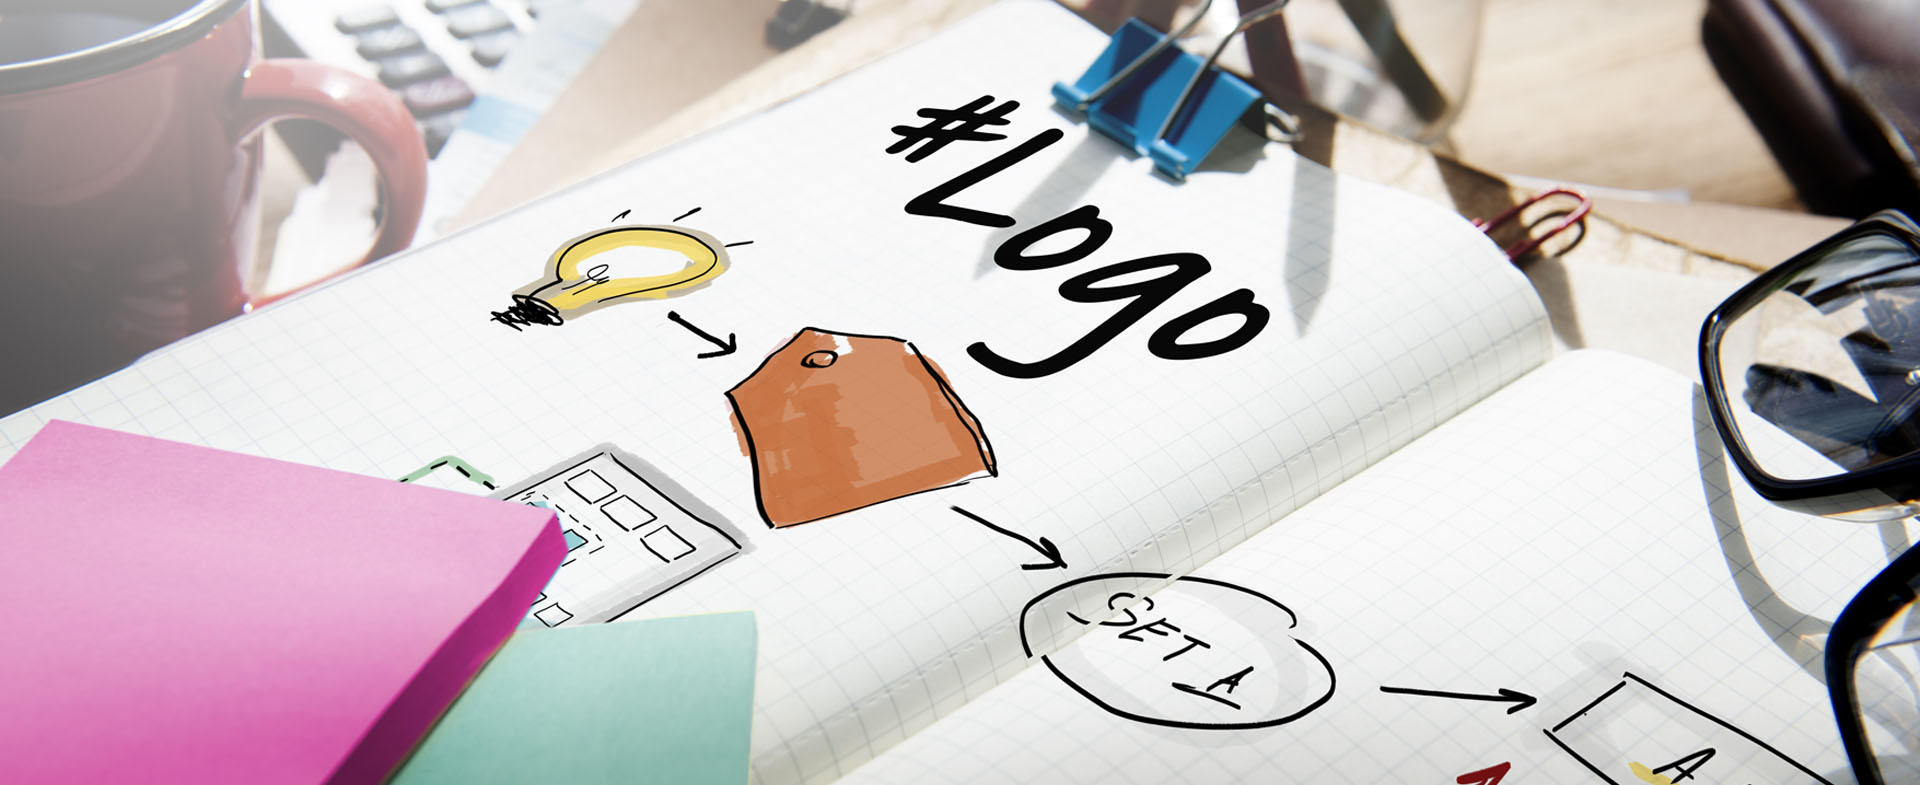 #Logo
SET A
A